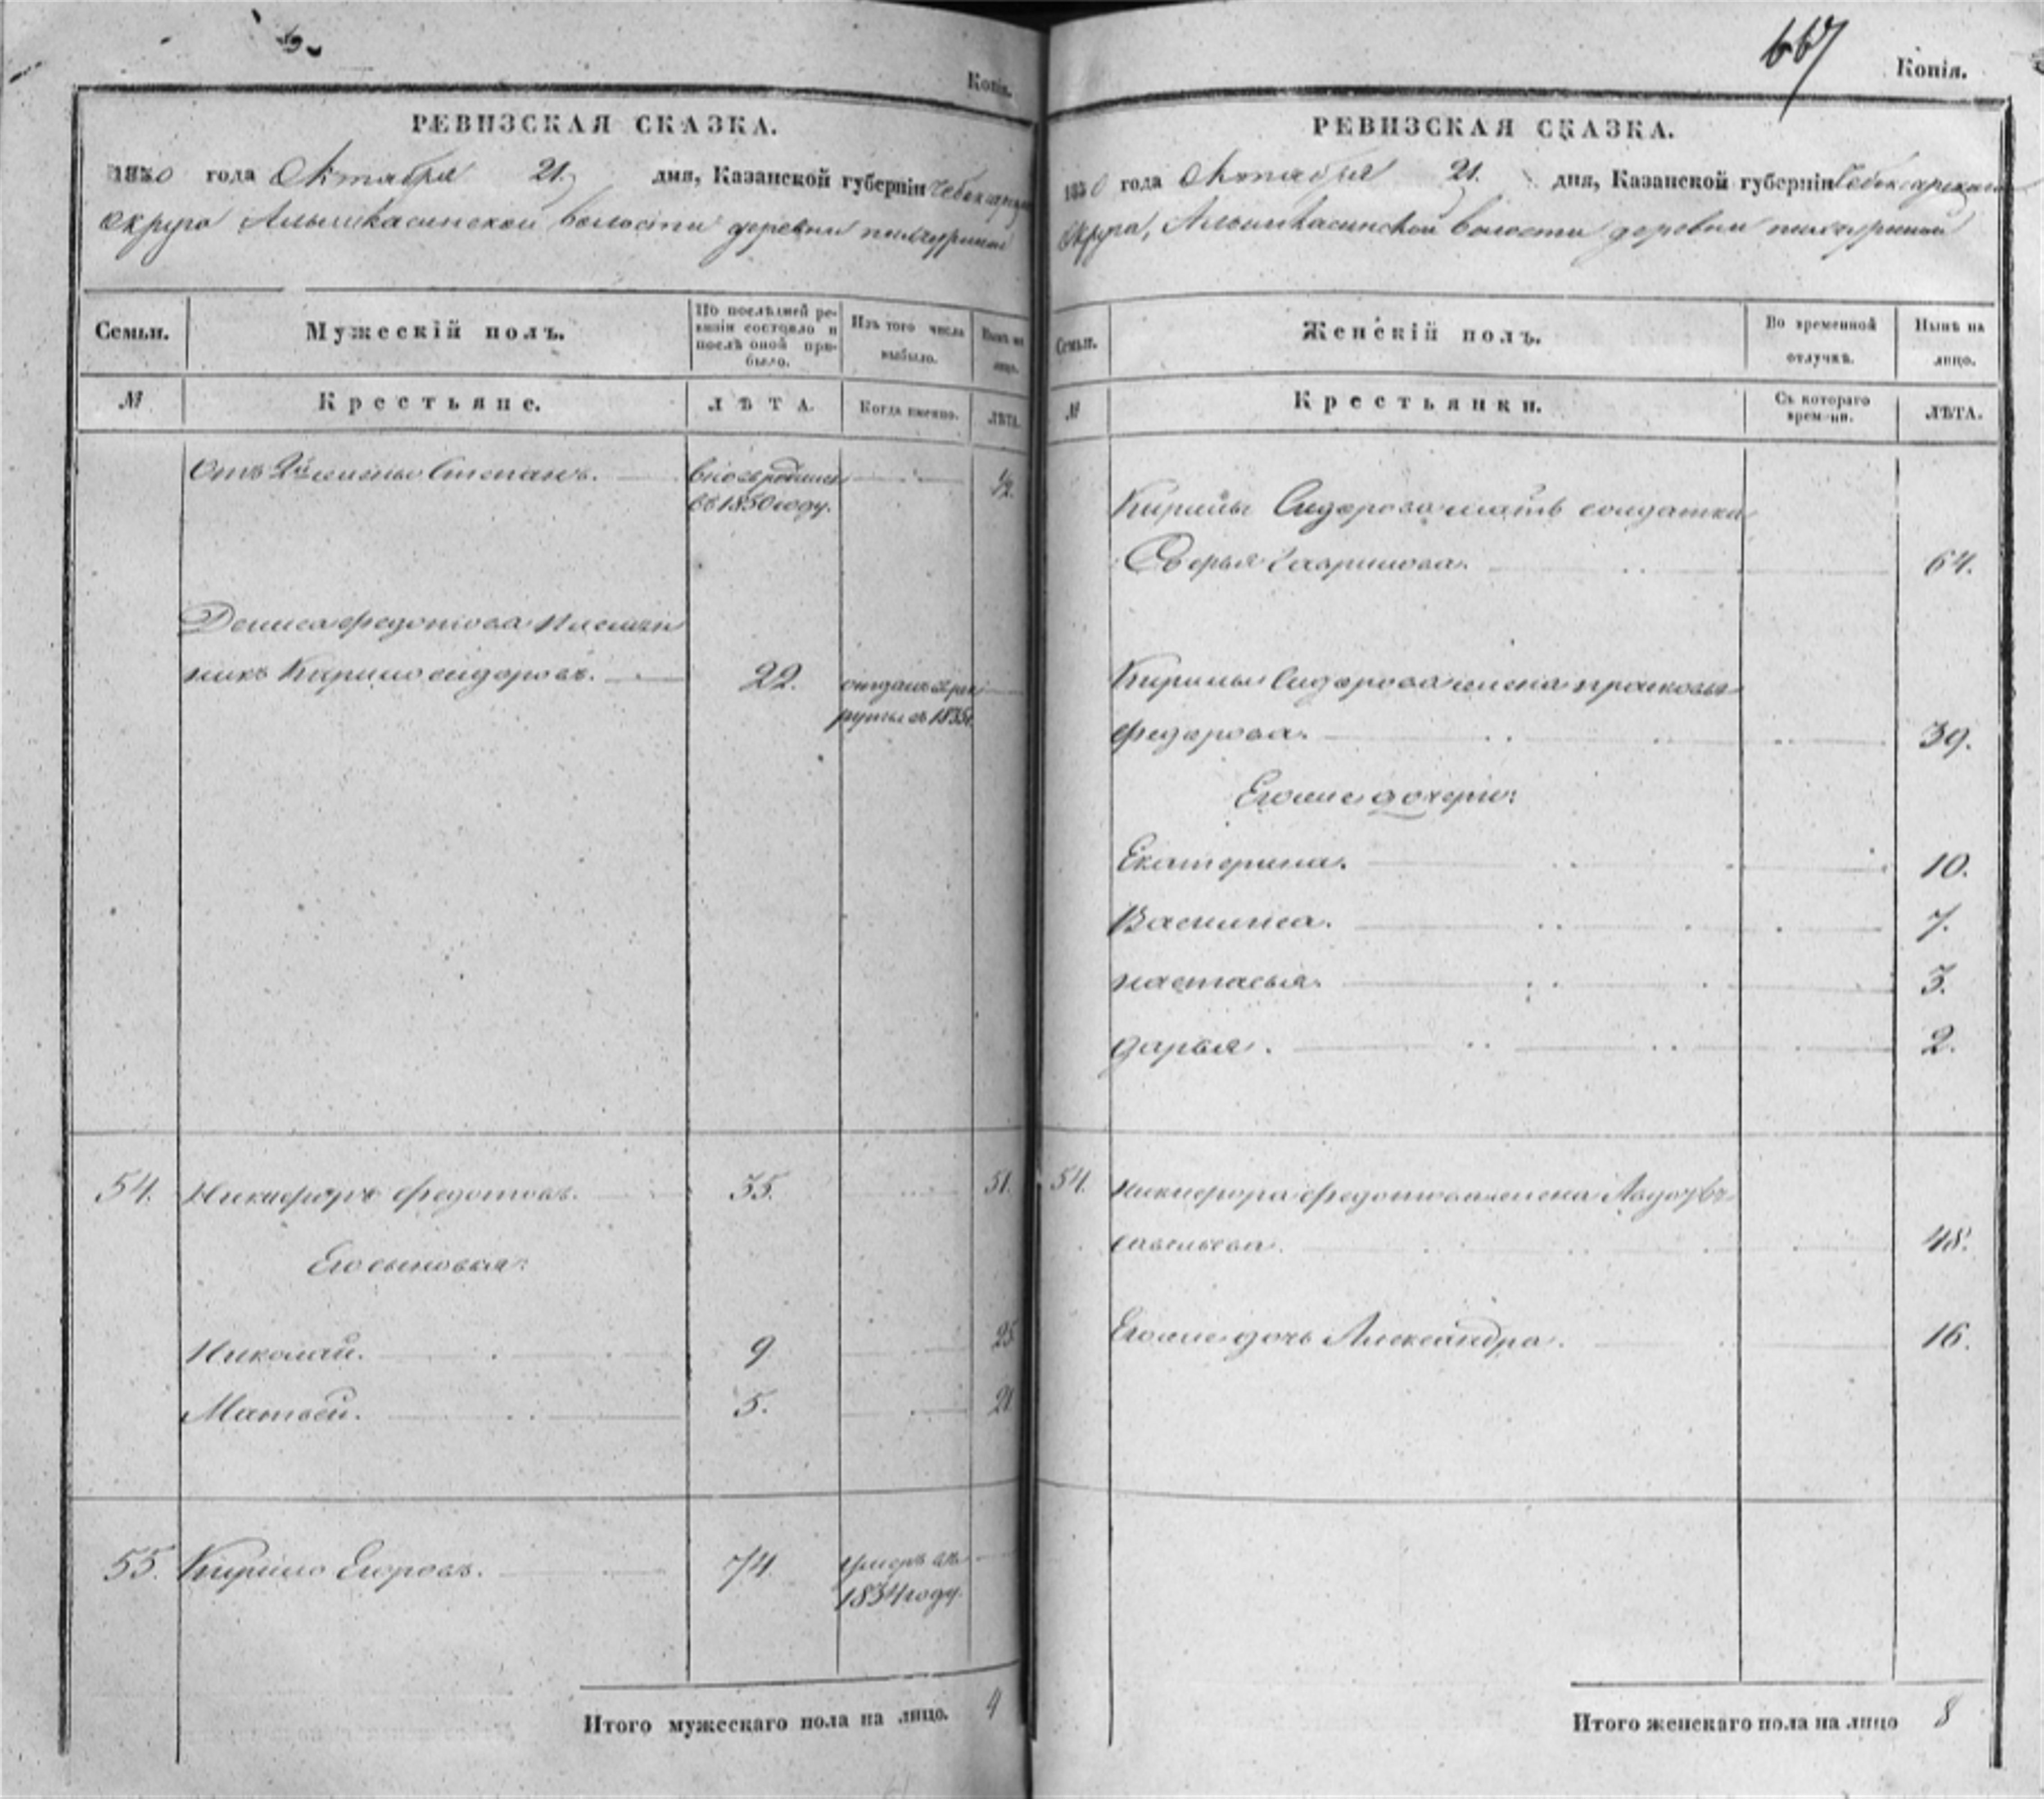 Копія.
РЕВИЗСКАЯ СКАЗКА.
1850 года Октября 21. дня, Казанской губерніи Чебоксарскаго
округа Алымкасинской волости деревни
Семьи.
Мужескій полъ.
По послѣдней ре-
визіи состояло и
послѣ оной при-
было.
Изъ того числа
выбыло.
Нынѣ на
лицо.
№
Крестьяне.
ЛѢТА.
Когда имянно.
ЛѢТА.
Отъ 2й жены Степанъ.
родился
въ 1850 году.
1/2.
Дениса Федотова племян
никъ Кирило Сидоровъ. 22. отданъ въ рек
руты въ 1835г.
54. Никифоръ Федотовъ. 35. 51.
Его сыновья:
Николай. 9 25
Матвей. 5. 21
55. Кирило Егоровъ. 74. умеръ въ
1834 году.
Итого мужескаго пола на лицо. 4
667
Копія.
РЕВИЗСКАЯ СКАЗКА.
1850 года Октября 21. дня, Казанской губерніи Чебоксарскаго
округа, Алымкасинской волости деревни
Семьи.
Женскій полъ.
Во временной
отлучкѣ.
Нынѣ на
лицо.
№
Крестьянки.
Съ котораго
времени.
ЛѢТА.
Кирилы Сидорова мать солдатка
Гаврилова. 64.
Кирилы Сидорова жена прасковья
Федорова. 39.
Его же дочери:
Екатерина. 10.
Василиса. 7.
настасья. 3.
дарья. 2.
54. никифора Федотова жена Авдотья
савельева. 48.
Его же дочь Александра. 16.
Итого женскаго пола на лицо 8